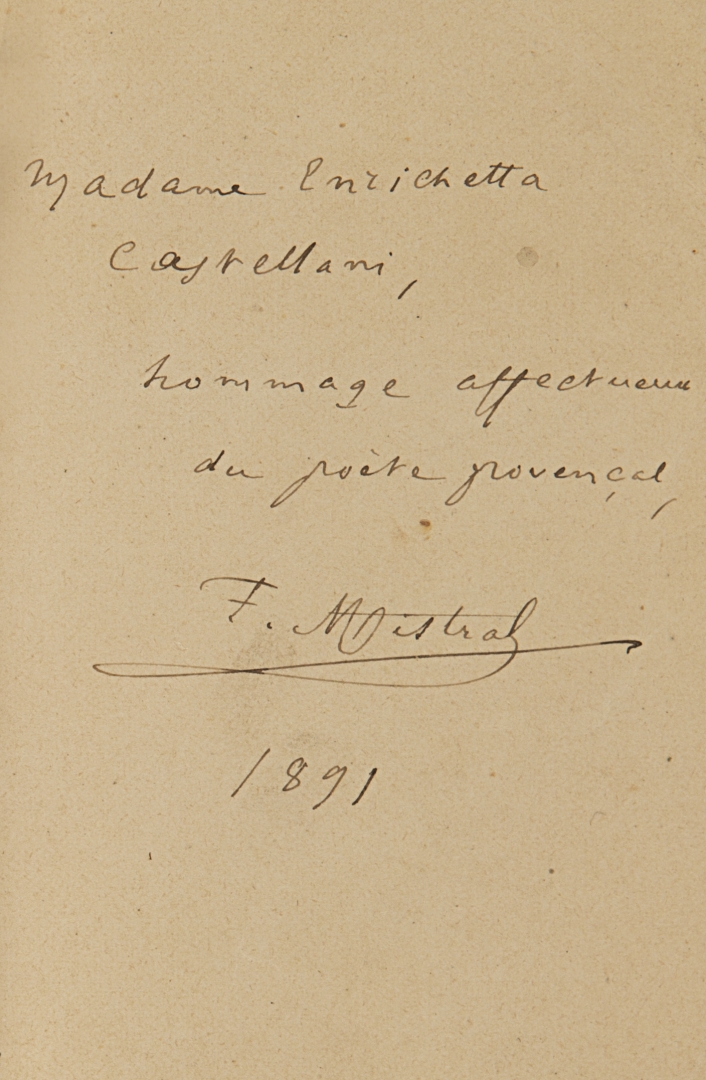 Madame Enrichetta
Castellani,
hommage affectueux
du poète provençal,
F. Mistral
1891